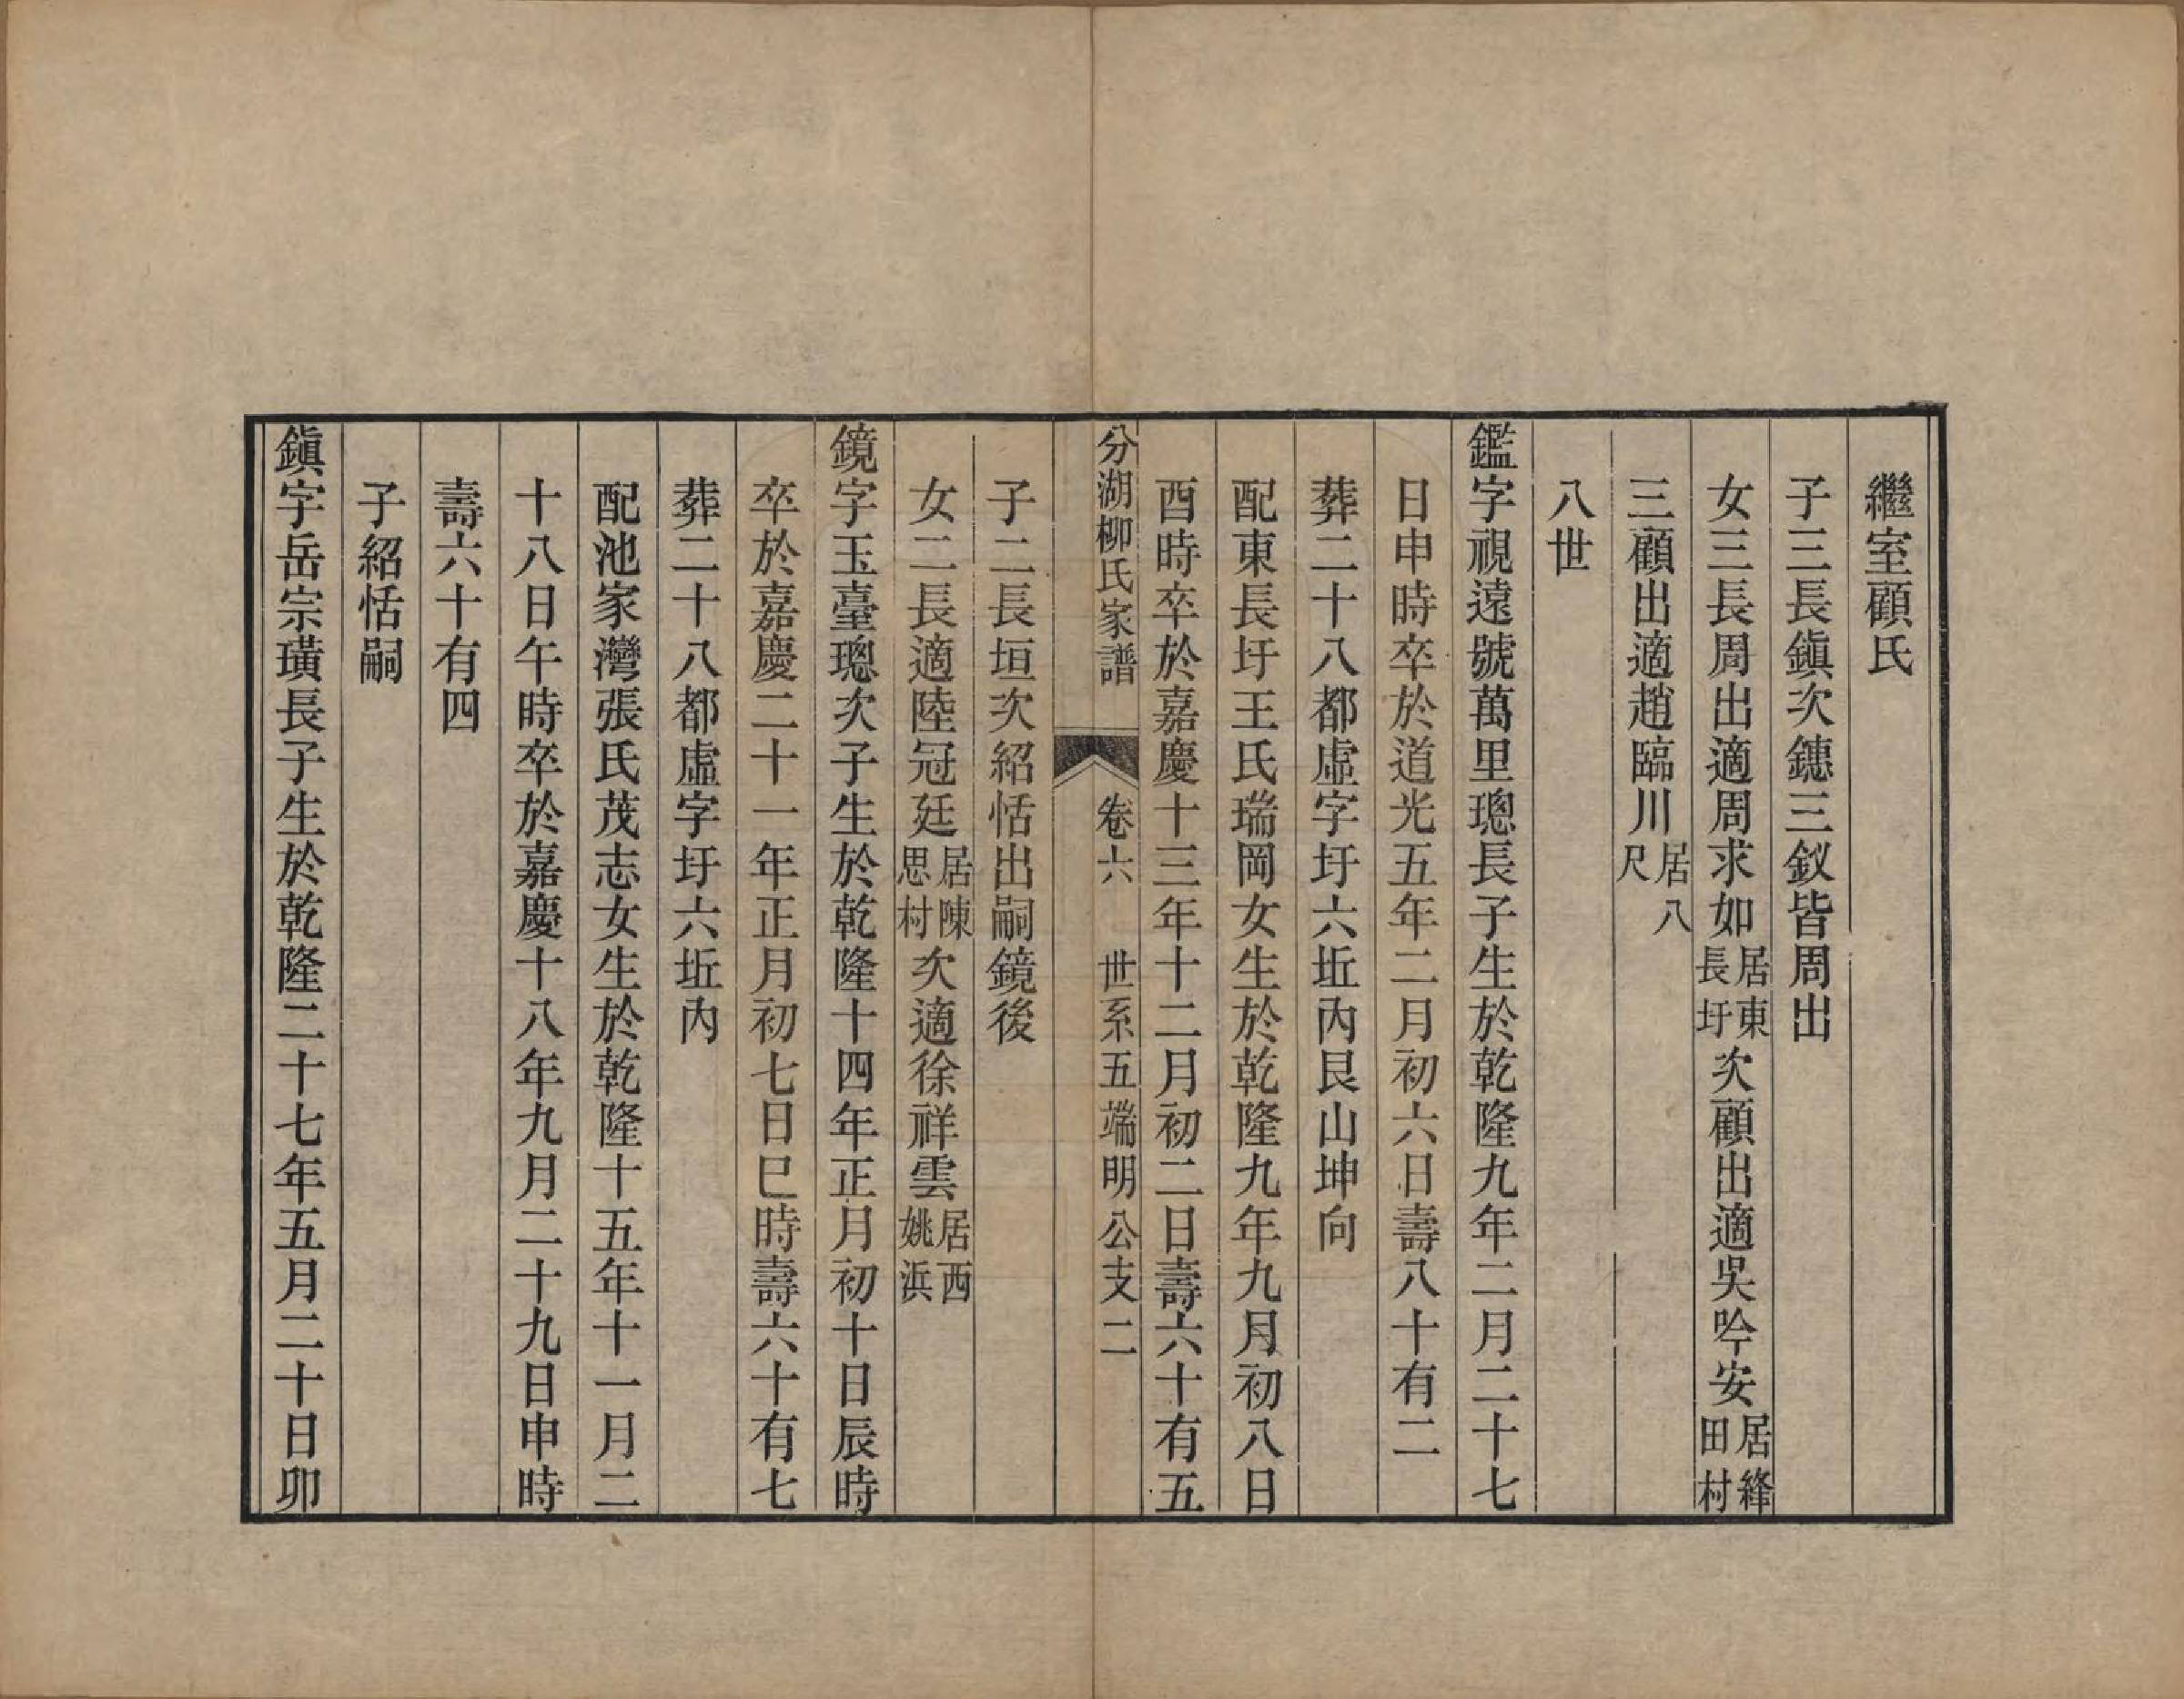 繼室顧氏
子三長鎭次鏸三釵皆周出
女三長周出適周求如居東長圩次顧出適吳吟安居絳田村
三顧出適趙臨川居八尺
八世
鑑字視遠號萬里璁長子生於乾隆九年二月二十七
日申時卒於道光五年二月初六日壽八十有二
葬二十八都虛字圩六坵內艮山坤向
配東長圩王氏瑞岡女生於乾隆九年九月初八日
酉時卒於嘉慶十三年十二月初二日壽六十有五
分湖柳氏家譜 卷六 世系五端明公支二
子二長垣次紹恬出嗣鏡後
女二長適陸冠廷居陳思村次適徐祥雲居西姚浜
鏡字玉臺璁次子生於乾隆十四年正月初十日辰時
卒於嘉慶二十一年正月初七日巳時壽六十有七
葬二十八都虛字圩六坵內
配池家灣張氏茂志女生於乾隆十五年十一月二
十八日午時卒於嘉慶十八年九月二十九日申時
壽六十有四
子紹恬嗣
鎭字岳宗璜長子生於乾隆二十七年五月二十日卯